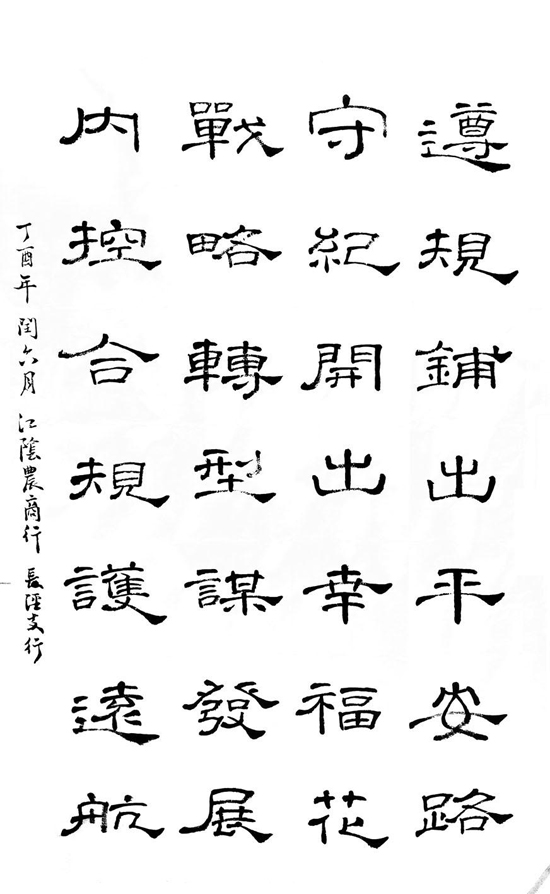 遵規鋪出平安路
守紀開出幸福花
戰略轉型謀發展
内控合規護遠航
丁酉年閏六月江陰農商行長涇支行